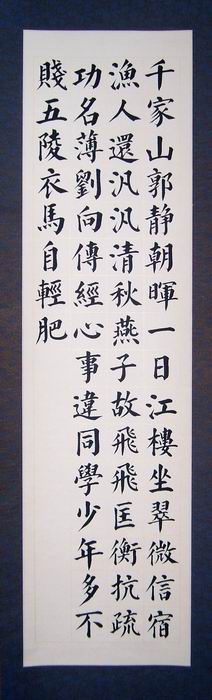 千家山郭静朝暉一日江樓坐翠微信宿
漁人還汎汎清秋燕子故飛飛匡衡抗疏
功名薄劉向傳經心事違同學少年多不
賤五陵衣馬自輕肥